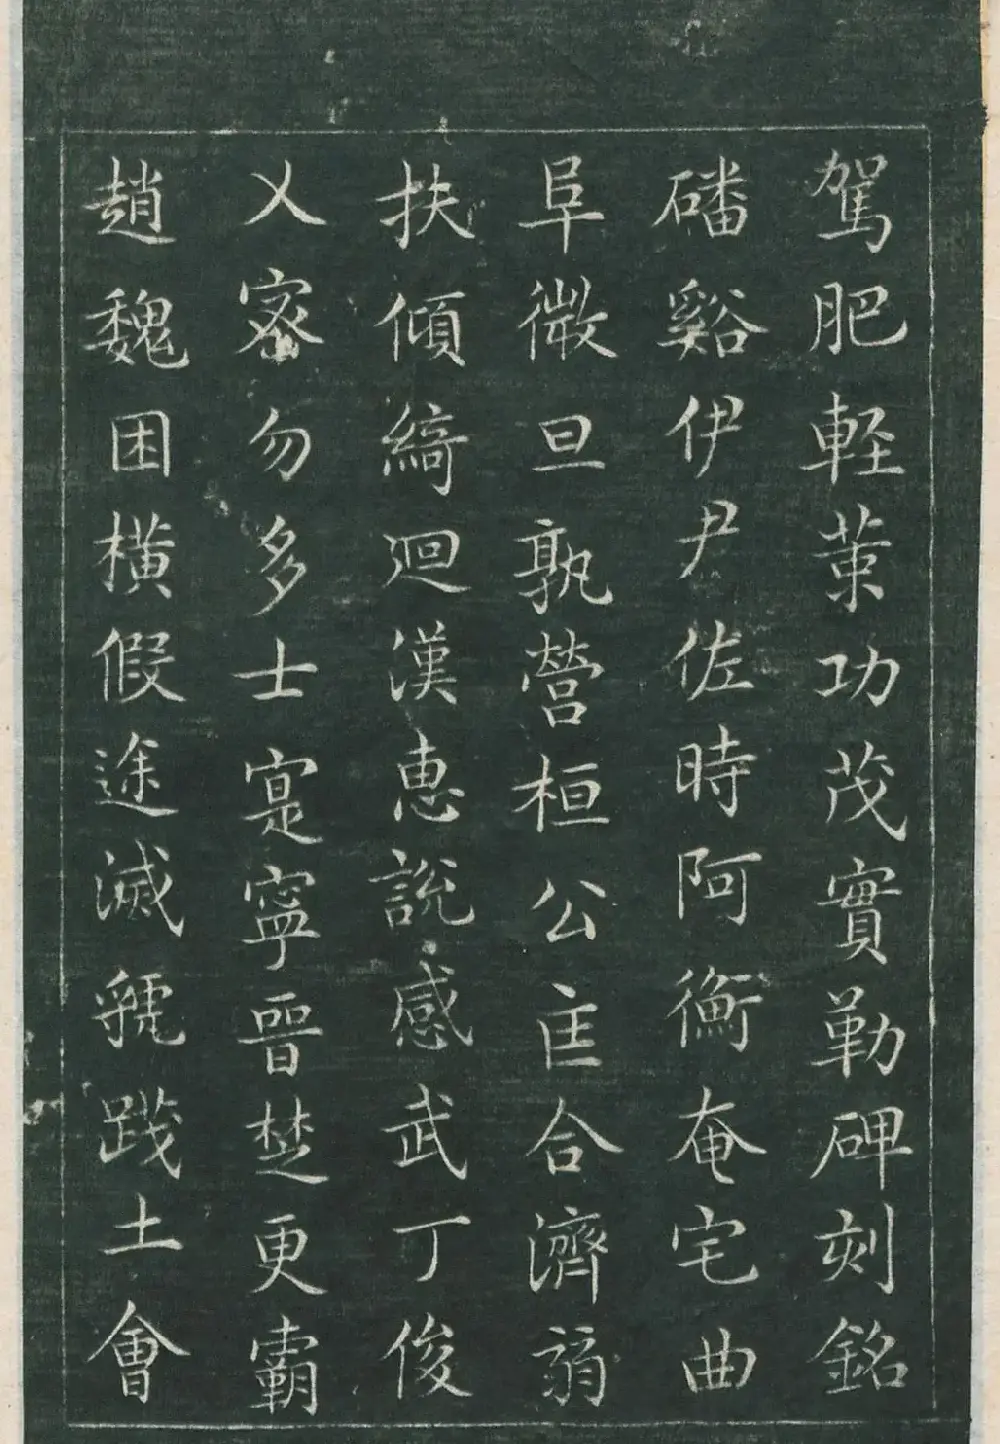 駕肥軽策功茂實勒碑刻銘
磻谿伊尹佐時阿衡奄宅曲
阜微旦孰營桓公匡合濟弱
扶傾綺迴漢惠說感武丁俊
乂密勿多士寔寧晉楚更霸
趙魏困橫假途滅虢踐土會